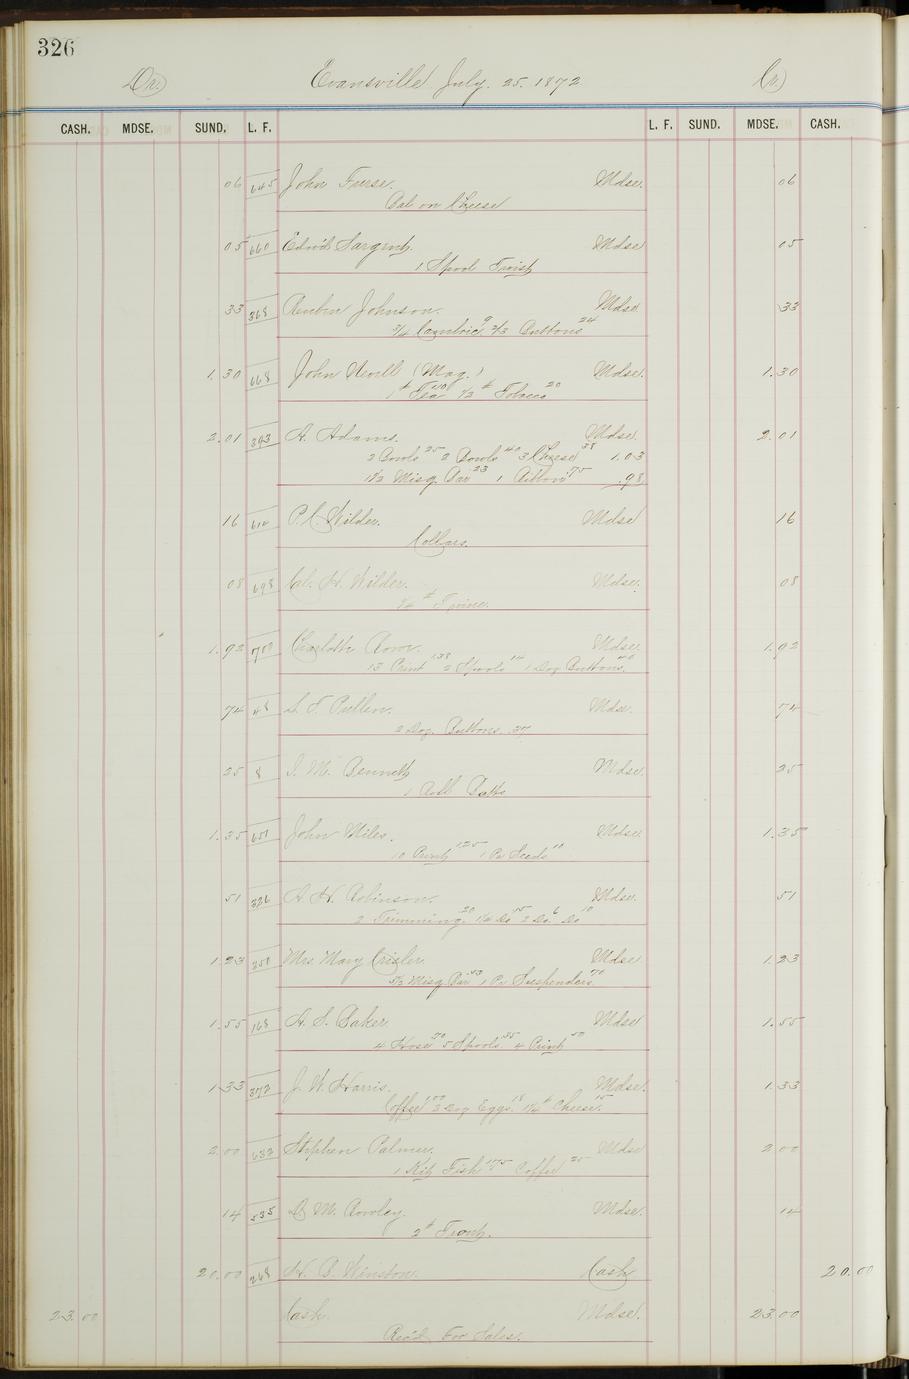 326
Dr. Evansville July. 25. 1872 Cr.
CASH. MDSE. SUND. L. F. L. F. SUND. MDSE. CASH.
06 645 John Furse. Mdse. 06
Bal on Cheese
05 660 Edwd Sargent. Mdse 05
1 Spool Twist
33 368 Reubin Johnson. Mdse 33
3/4 Cambric 9 2/3 Buttons 24
1.30 668 John Nevill (Mag.) Mdse. 1.30
1 # Tea 110 1/2 # Tobacco 20
2.01 393 A. Adams. Mdse. 2.01
2 Bowls 25 2 Bowls 40 3 Cheese 38 1.03
1 1/2 Misq. Bar 23 1 Ribbon 75 .98
16 610 P. C. Wilder. Mdse 16
Collars.
08 698 Cal. H. Wilder. Mdse. 08
# Twine.
1.92 Charlotte Mdse. 1.92
13 Print 138 2 Spools 14 1 Doz Buttons. 40
74 48 L. T. Pullen. Mdse. 74
2 Doz. Buttons. 37
25 8 I. M. Bennett Mdse. 25
1 Roll Batts
1.35 651 John Miles. Mdse. 1.35
10 Print 125 1 Pr Seeds 10
51 326 A. H. Robinson. Mdse. 51
2 Trimming 20 1 1/2 Do 15 2 Do. 6 Do 10
1.23 351 Mrs Mary Crisler. Mdse 1.23
3 1/2 Misq Bar 53 1 Pr Suspenders 70
1.55 168 A. S. Baker. Mdse 1.55
4 Hose 70 5 Spools 35 4 Print 50
1.33 372 J. W. Harris. Mdse. 1.33
Coffee 100 2 Doz Eggs. 18 1 1/4 # Cheese. 15
2.00 632 Stephen Palmer. Mdse 2.00
1 Kit Fish 175 Coffee 25
14 535 D. M. Rowley. Mdse. 14
2 # Trout.
20.00 268 H. B. Winston. Cash 20.00
23.00 Cash. Mdse. 23.00
Rec'd For Sales.